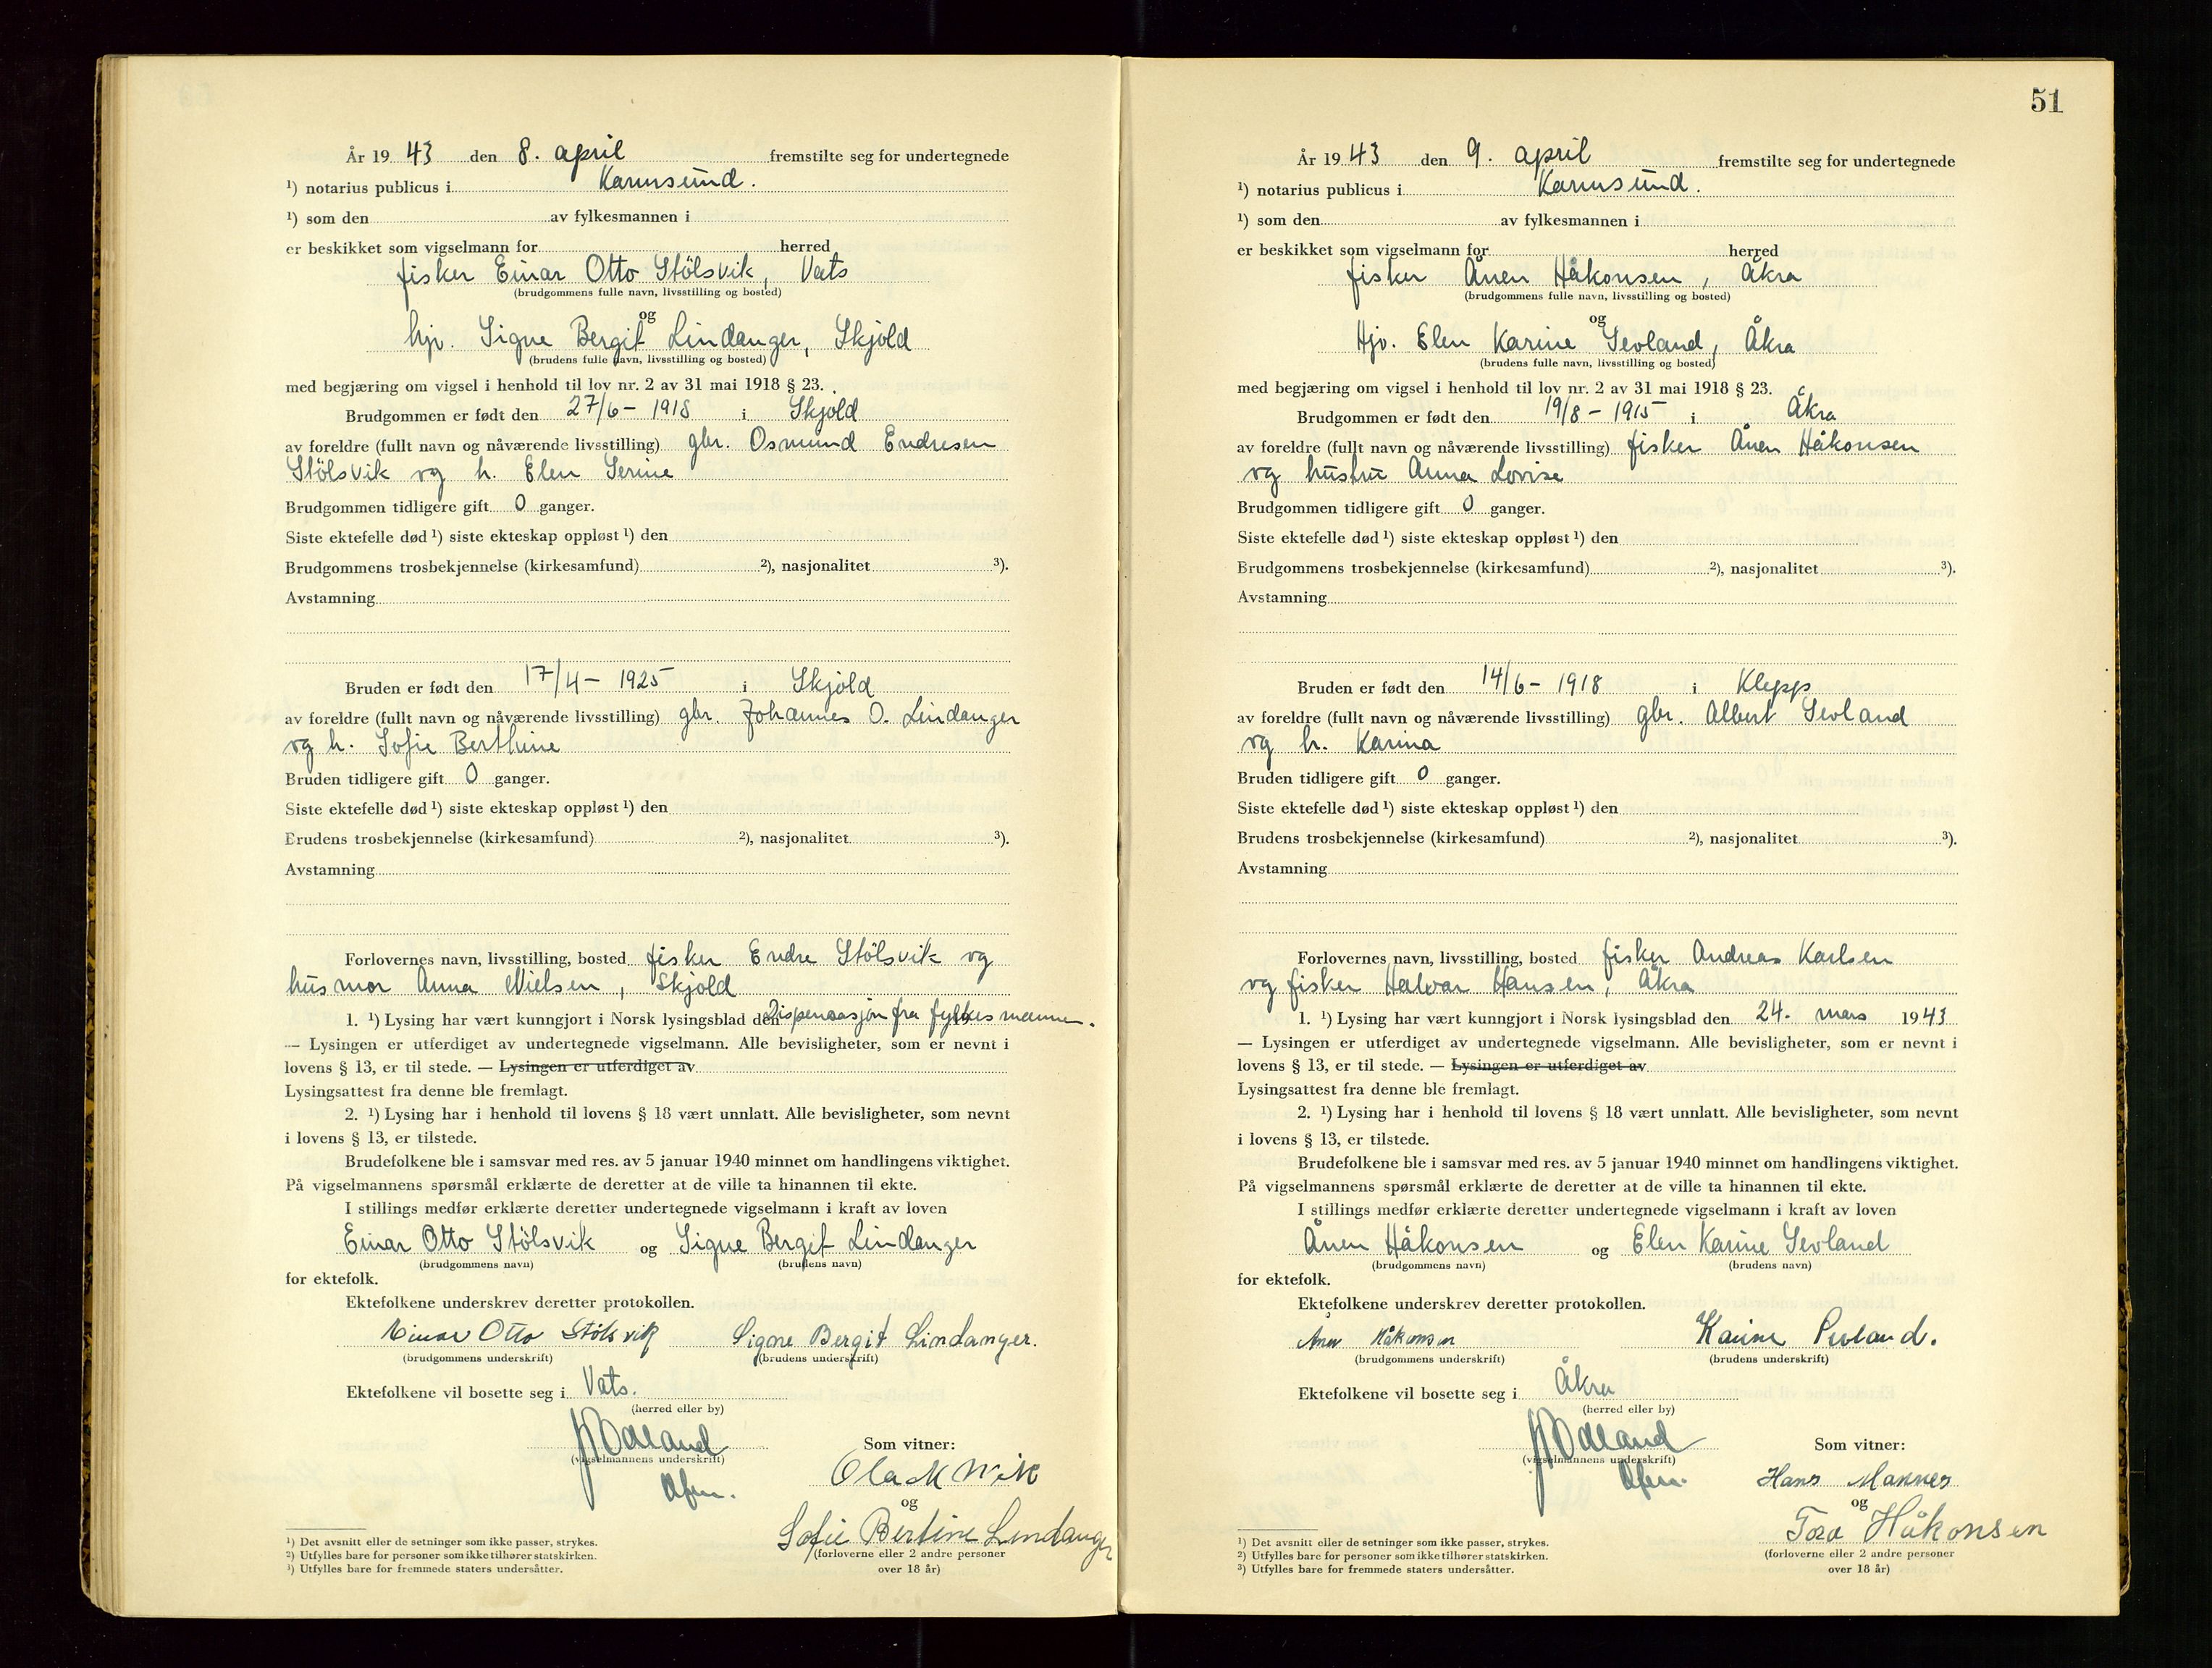 År 19 43 den 8. april fremstilte seg for undertegnede
¹) notarius publicus i Karmsund.
¹) som den av fylkesmannen i
er beskikket som vigselmann for herred
fisker Einar Otto Stölsvik, Vats
(brudgommens fulle navn, livsstilling og bosted)
og
hjv. Signe Bergit Lindanger, Skjold
(brudens fulle navn, livsstilling og bosted)
med begjæring om vigsel i henhold til lov nr. 2 av 31 mai 1918 § 23.
Brudgommen er født den 27/6 - 1918 i Skjold
av foreldre (fullt navn og nåværende livsstilling) gbr. Osmund Endresen
Stölsvik og h. Elen Serine
Brudgommen tidligere gift 0 ganger.
Siste ektefelle død ¹) siste ekteskap oppløst ¹) den
Brudgommens trosbekjennelse (kirkesamfund) ²), nasjonalitet ³).
Avstamning
Bruden er født den 17/4 - 1925 i Skjold
av foreldre (fullt navn og nåværende livsstilling) gbr. Johannes O. Lindanger
og h. Sofie Berthine
Bruden tidligere gift 0 ganger.
Siste ektefelle død ¹) siste ekteskap oppløst ¹) den
Brudens trosbekjennelse (kirkesamfund) ²), nasjonalitet ³).
Avstamning
Forlovernes navn, livsstilling, bosted fisker Endre Stölsvik og
husmor Anna Nielsen, Skjold
1. ¹) Lysing har vært kunngjort i Norsk lysingsblad den Dispensasjon fra fylkesmannen.
— Lysingen er utferdiget av undertegnede vigselmann. Alle bevisligheter, som er nevnt i
lovens § 13, er til stede. — Lysingen er utferdiget av
Lysingsattest fra denne ble fremlagt.
2. ¹) Lysing har i henhold til lovens § 18 vært unnlatt. Alle bevisligheter, som nevnt
i lovens § 13, er tilstede.
Brudefolkene ble i samsvar med res. av 5 januar 1940 minnet om handlingens viktighet.
På vigselmannens spørsmål erklærte de deretter at de ville ta hinannen til ekte.
I stillings medfør erklærte deretter undertegnede vigselmann i kraft av loven
Einar Otto Stölsvik og Signe Bergit Lindanger
(brudgommens navn) (brudens navn)
for ektefolk.
Ektefolkene underskrev deretter protokollen.
Einar Otto Stölsvik Signe Bergit Lindanger.
(brudgommens underskrift) (brudens underskrift)
Ektefolkene vil bosette seg i Vats.
(herred eller by)
Ödland
(vigselmannens underskrift)
Som vitner:
Ola
og
Sofie Bertine Lindanger
(forloverne eller 2 andre personer
over 18 år)
¹) Det avsnitt eller de setninger som ikke passer, strykes.
²) Utfylles bare for personer som ikke tilhører statskirken.
³) Utfylles bare for fremmede staters undersåtter.
51
År 19 43 den 9. april fremstilte seg for undertegnede
¹) notarius publicus i Karmsund.
¹) som den av fylkesmannen i
er beskikket som vigselmann for herred
fisker Ånen Håkonsen, Åkra
(brudgommens fulle navn, livsstilling og bosted)
og
Hjv. Elen Karine Sevland, Åkra
(brudens fulle navn, livsstilling og bosted)
med begjæring om vigsel i henhold til lov nr. 2 av 31 mai 1918 § 23.
Brudgommen er født den 19/8 - 1915 i Åkra
av foreldre (fullt navn og nåværende livsstilling) fisker Ånen Håkonsen
og hustru Anna Lovise
Brudgommen tidligere gift 0 ganger.
Siste ektefelle død ¹) siste ekteskap oppløst ¹) den
Brudgommens trosbekjennelse (kirkesamfund) ²), nasjonalitet ³).
Avstamning
Bruden er født den 14/6 - 1918 i Klepp
av foreldre (fullt navn og nåværende livsstilling) gbr. Albert Sevland
og h. Karina
Bruden tidligere gift 0 ganger.
Siste ektefelle død ¹) siste ekteskap oppløst ¹) den
Brudens trosbekjennelse (kirkesamfund) ²), nasjonalitet ³).
Avstamning
Forlovernes navn, livsstilling, bosted fisker Andreas Karlsen
og fisker Halvar Hansen, Åkra
1. ¹) Lysing har vært kunngjort i Norsk lysingsblad den 24. mars 1943
— Lysingen er utferdiget av undertegnede vigselmann. Alle bevisligheter, som er nevnt i
lovens § 13, er til stede. — Lysingen er utferdiget av
Lysingsattest fra denne ble fremlagt.
2. ¹) Lysing har i henhold til lovens § 18 vært unnlatt. Alle bevisligheter, som nevnt
i lovens § 13, er tilstede.
Brudefolkene ble i samsvar med res. av 5 januar 1940 minnet om handlingens viktighet.
På vigselmannens spørsmål erklærte de deretter at de ville ta hinannen til ekte.
I stillings medfør erklærte deretter undertegnede vigselmann i kraft av loven
Ånen Håkonsen og Elen Karine Sevland
(brudgommens navn) (brudens navn)
for ektefolk.
Ektefolkene underskrev deretter protokollen.
Ånen Håkonsen Karine Sevland.
(brudgommens underskrift) (brudens underskrift)
Ektefolkene vil bosette seg i Åkra
(herred eller by)
Ödland
(vigselmannens underskrift)
Som vitner:
Hans Mannes
og
Tora Håkonsen
(forloverne eller 2 andre personer
over 18 år)
¹) Det avsnitt eller de setninger som ikke passer, strykes.
²) Utfylles bare for personer som ikke tilhører statskirken.
³) Utfylles bare for fremmede staters undersåtter.